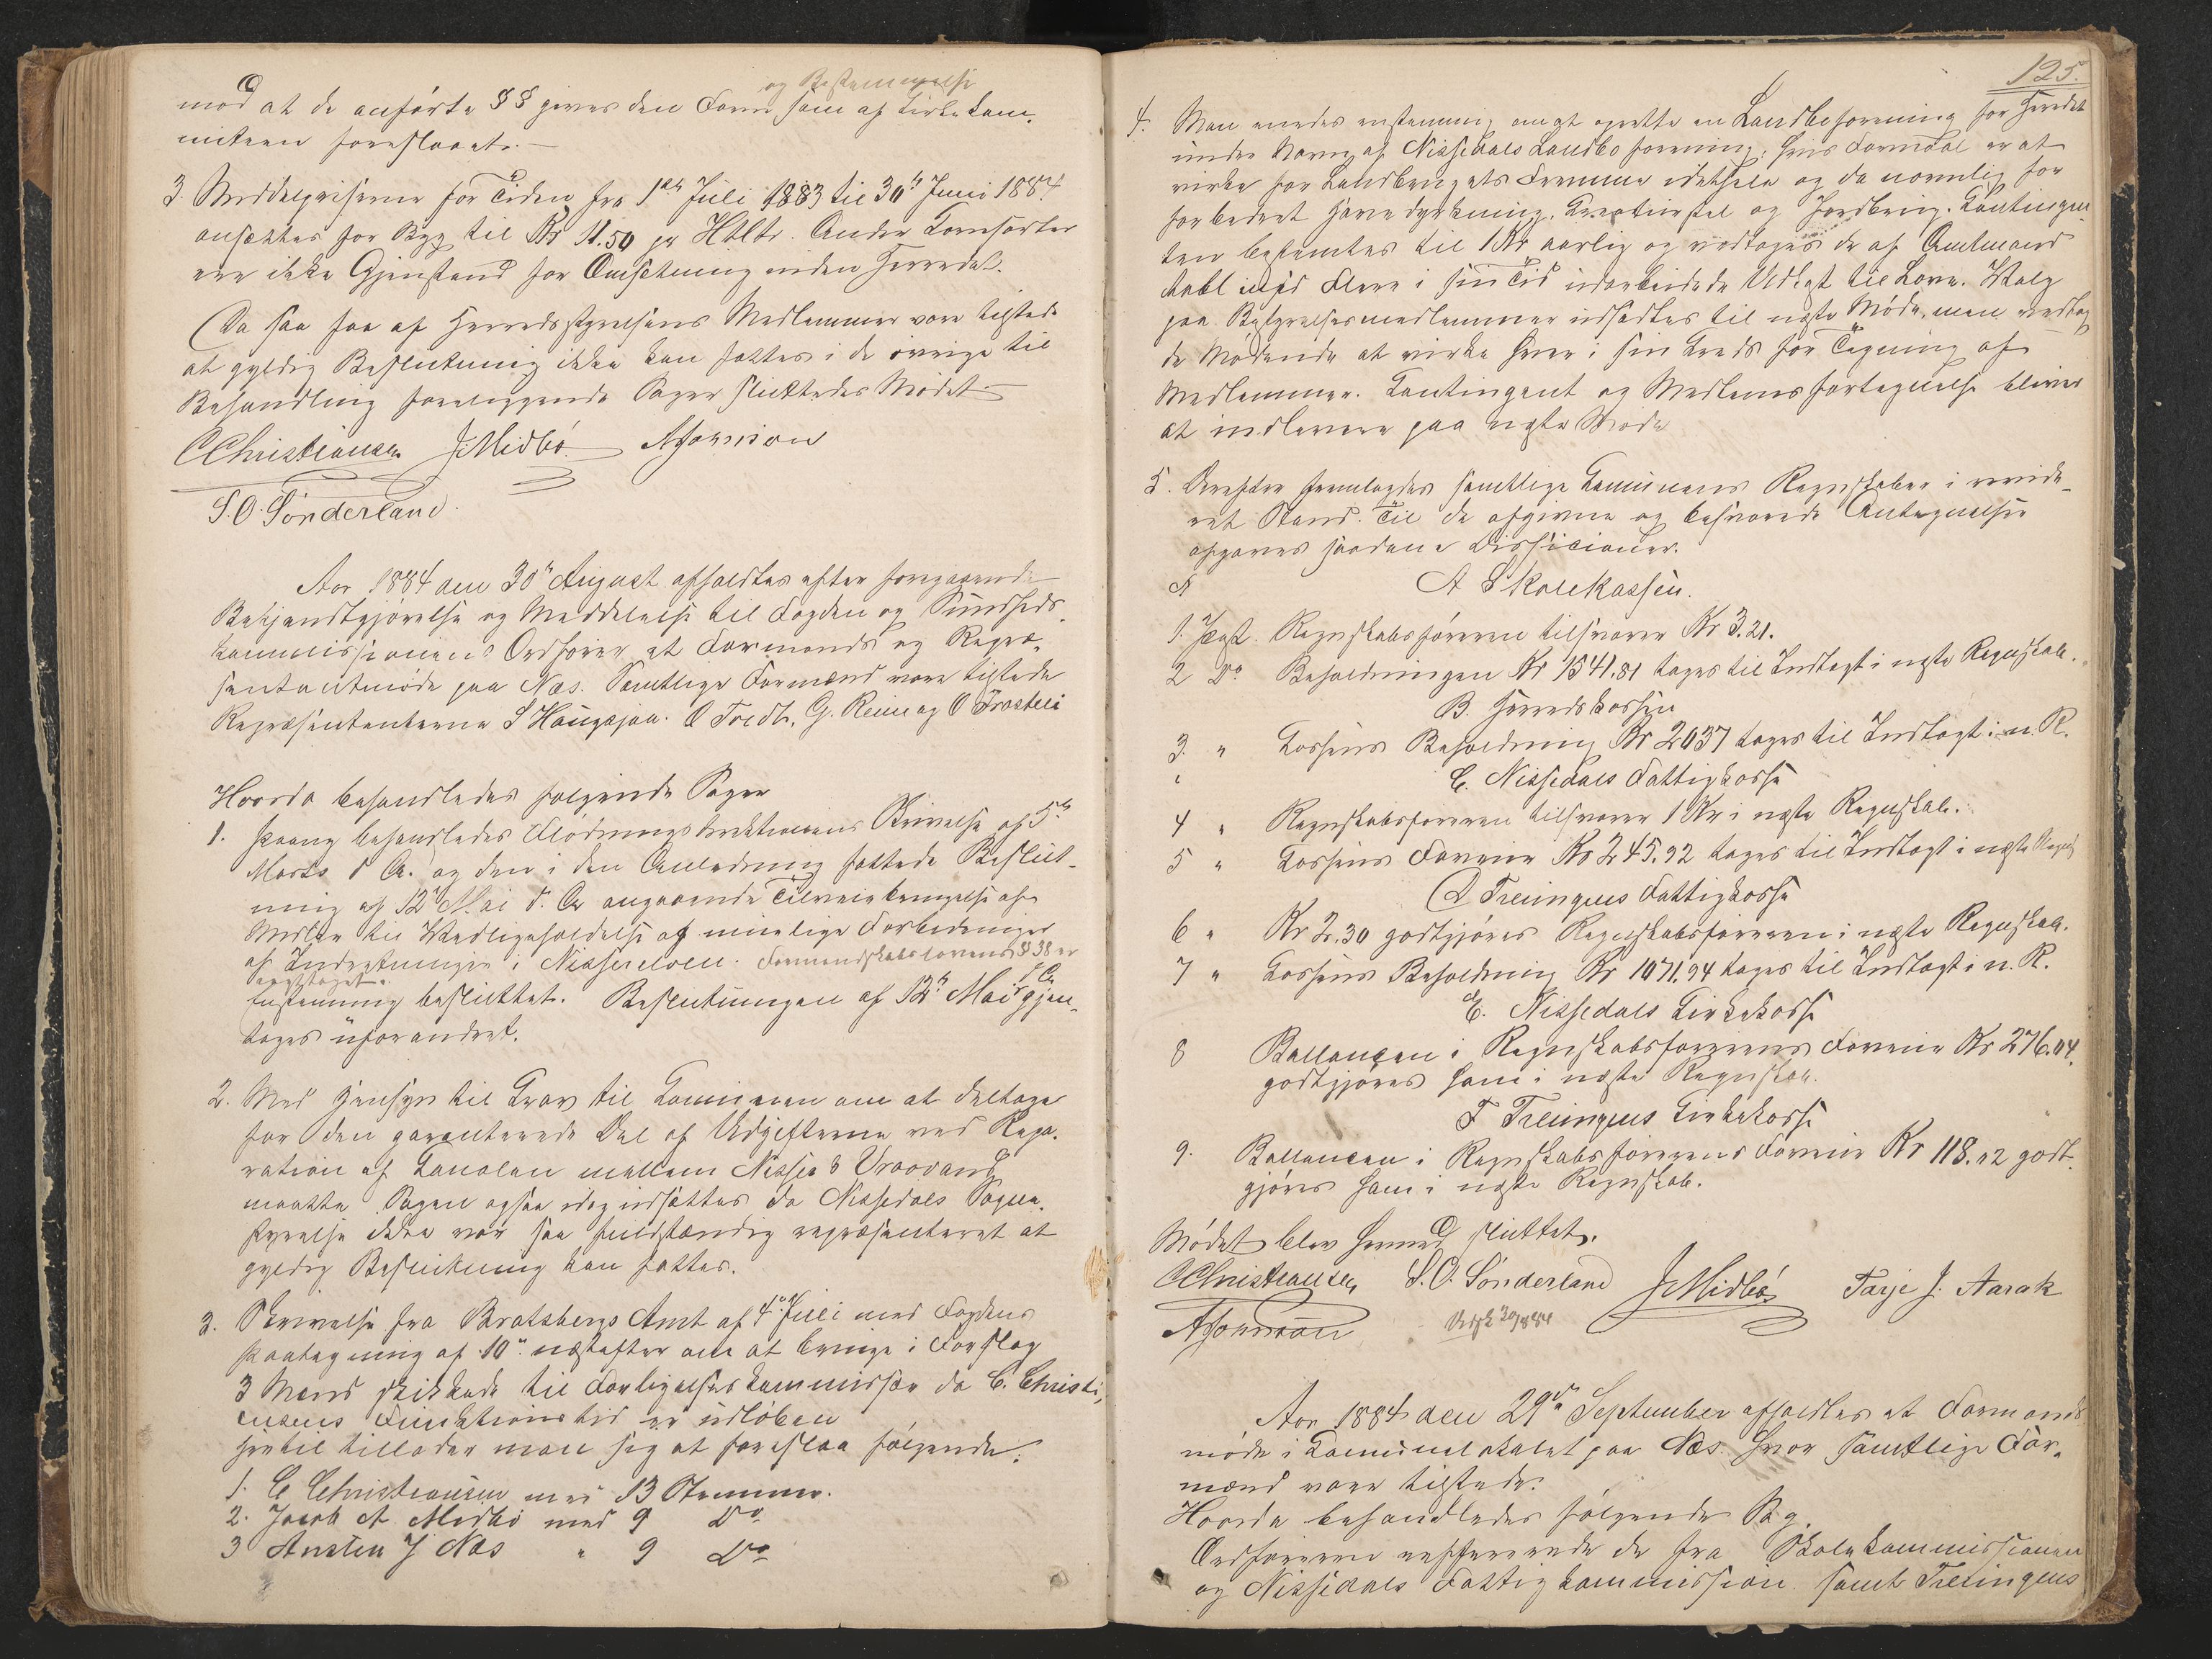 og Bestemmelse
mod at de anførte §§ gives den Form som af Kirkekom-
miteen foreslaaet. —
3. Middelpriserne for Tiden fra 1ste Juli 1883 til 30te Juni 1884
ansættes for Byg til Kr 11.50 pr Hktltr. Andre Kornsorter
ere ikke Gjenstand for Omsetning inden Herredet.
Da saa faa af Herredsstyrelsens Medlemmer vare tilstede
at gyldig Beslutning ikke kan fattes i de øvrige til
Behandling foreliggende Sager sluttedes Mødet —
CChristiansen JMidbø AJohnson
S.O. Sønderland.
Aar 1884 den 30te August afholdtes efter foregaaende
Bekjendtgjørelse og Meddelelse til Fogden og Sundheds-
kommissionens Ordfører et Formands og Repræ-
sentantmøde paa Næs. Samtlige Formænd vare tilstede
Repræsentanterne S Haugsjaa. O Tredt, G. Reine og O Frøstlii
Hvorda behandledes følgende Sager
1. Paany behandledes Flødningsdirektionens Skrivelse af 5te
Marts d A. og den i den Anledning fattede Beslut-
ning af 12te Mai d. A. angaaende Tilveiebringelse af
Midler til Vedligeholdelse og mulige Forbedringer
af Indretningen i Nisserelven. Formandskabslovens § 38 er
iagttaget.
Enstemmig besluttet. Beslutningen af 12te Mai d. A. gjen-
tages uforandret.
2. Med Hensyn til Krav til Kommunen om at deltage
for den garanterede Del af Udgifterne ved Repa-
ration af Kanalen mellem Nisser & Vraavand
maatte Sagen ogsaa idag udsættes da Nissedals Sogne-
styrelse ikke var saa fuldstændig repræsenteret at
gyldig Beslutning kan fattes.
3. Skrivelse fra Bratsbergs Amt af 4de Juli med Fogdens
Paategning af 10de næstefter om at bringe i Forslag
3 Mænd skikkede til Forligelseskommissær da C. Christi-
ansens Funktionstid er udløben
Hertil tillader man sig at foreslaa følgende.
1. C Christiansen med 13 Stemmer.
2. Jacob A Midbø med 9 Do
3 Austen J Næs " 9 Do
125.
4. Man enedes enstemmig om at oprette en Landboforening for Herredet
under Navn af Nissedals Landboforening, hvis Formaal er at
virke for Landbrugets Fremme idethele og da navnlig for
forbedret Havedyrkning, Kreaturstel og Jordbrug. Kontingen-
ten bestemtes til 1 Kr aarlig og vedtoges de af Amtmand
Aall med Flere i sin Tid udarbeidede Udkast til Love. Valg
paa Bestyrelsesmedlemmer udsættes til næste Møde, men vedtog
de Mødende at virke hver i sin Kreds for Tegning af
Medlemmer. Kontingent og Medlemsfortegnelse bliver
at indlevere paa næste Møde
5. Derefter fremlagdes samtlige Kommunens Regnskaber i revide-
ret Stand. Til de afgivne og besvarede Antegnelser
afgaves saadanne Decisioner.
A Skolekassen.
1. Post. Regnskabsføreren tilsvarer Kr 3.21.
2 Do Beholdningen Kr 1541.81 tages til Indtægt i næste Regnskab.
B. Herredskassen
3. " Kassens Beholdning Kr 2037 tages til Indtægt i n. R.
C. Nissedals Fattigkasse
4 " Regnskabsføreren tilsvarer 1 Kr i næste Regnskab.
5 " Kassens Formue Kr 245.92 tages til Indtægt i næste Regnsk
D Treungens Fattigkasse
6 " Kr 2.30 godtgjøres Regnskabsføreren i næste Regnskab.
7 " Kassens Beholdning Kr 1071.94 tages til Indtægt i n. R.
E. Nissedals Kirkekasse
8 Ballancen i Regnskabsførerens Formue Kr 276.04.
godtgjøres ham i næste Regnskab.
F Treungens Kirkekasse
9. Ballancen i Regnskabsførerens Formue Kr 118.12 godt-
gjøres ham i næste Regnskab.
Mødet blev hermed sluttet.
CChristiansen S.O. Sønderland JMidbø Tarje J. Aarak
AJohnson 30/8 84
Aar 1884 den 29de September afholdtes et Formands
møde i Kommunelokalet paa Næs. Hvor samtlige For-
mænd vare tilstede.
Hvorda behandledes følgende Sag.
Ordføreren refererede de fra Skolekommissionen
og Nissedals Fattigkommission samt Treungens